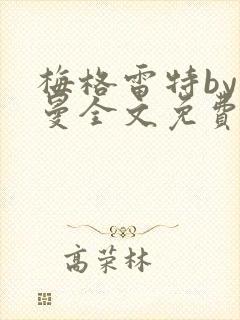 梅格雷特by
曼全文免費
高荣林